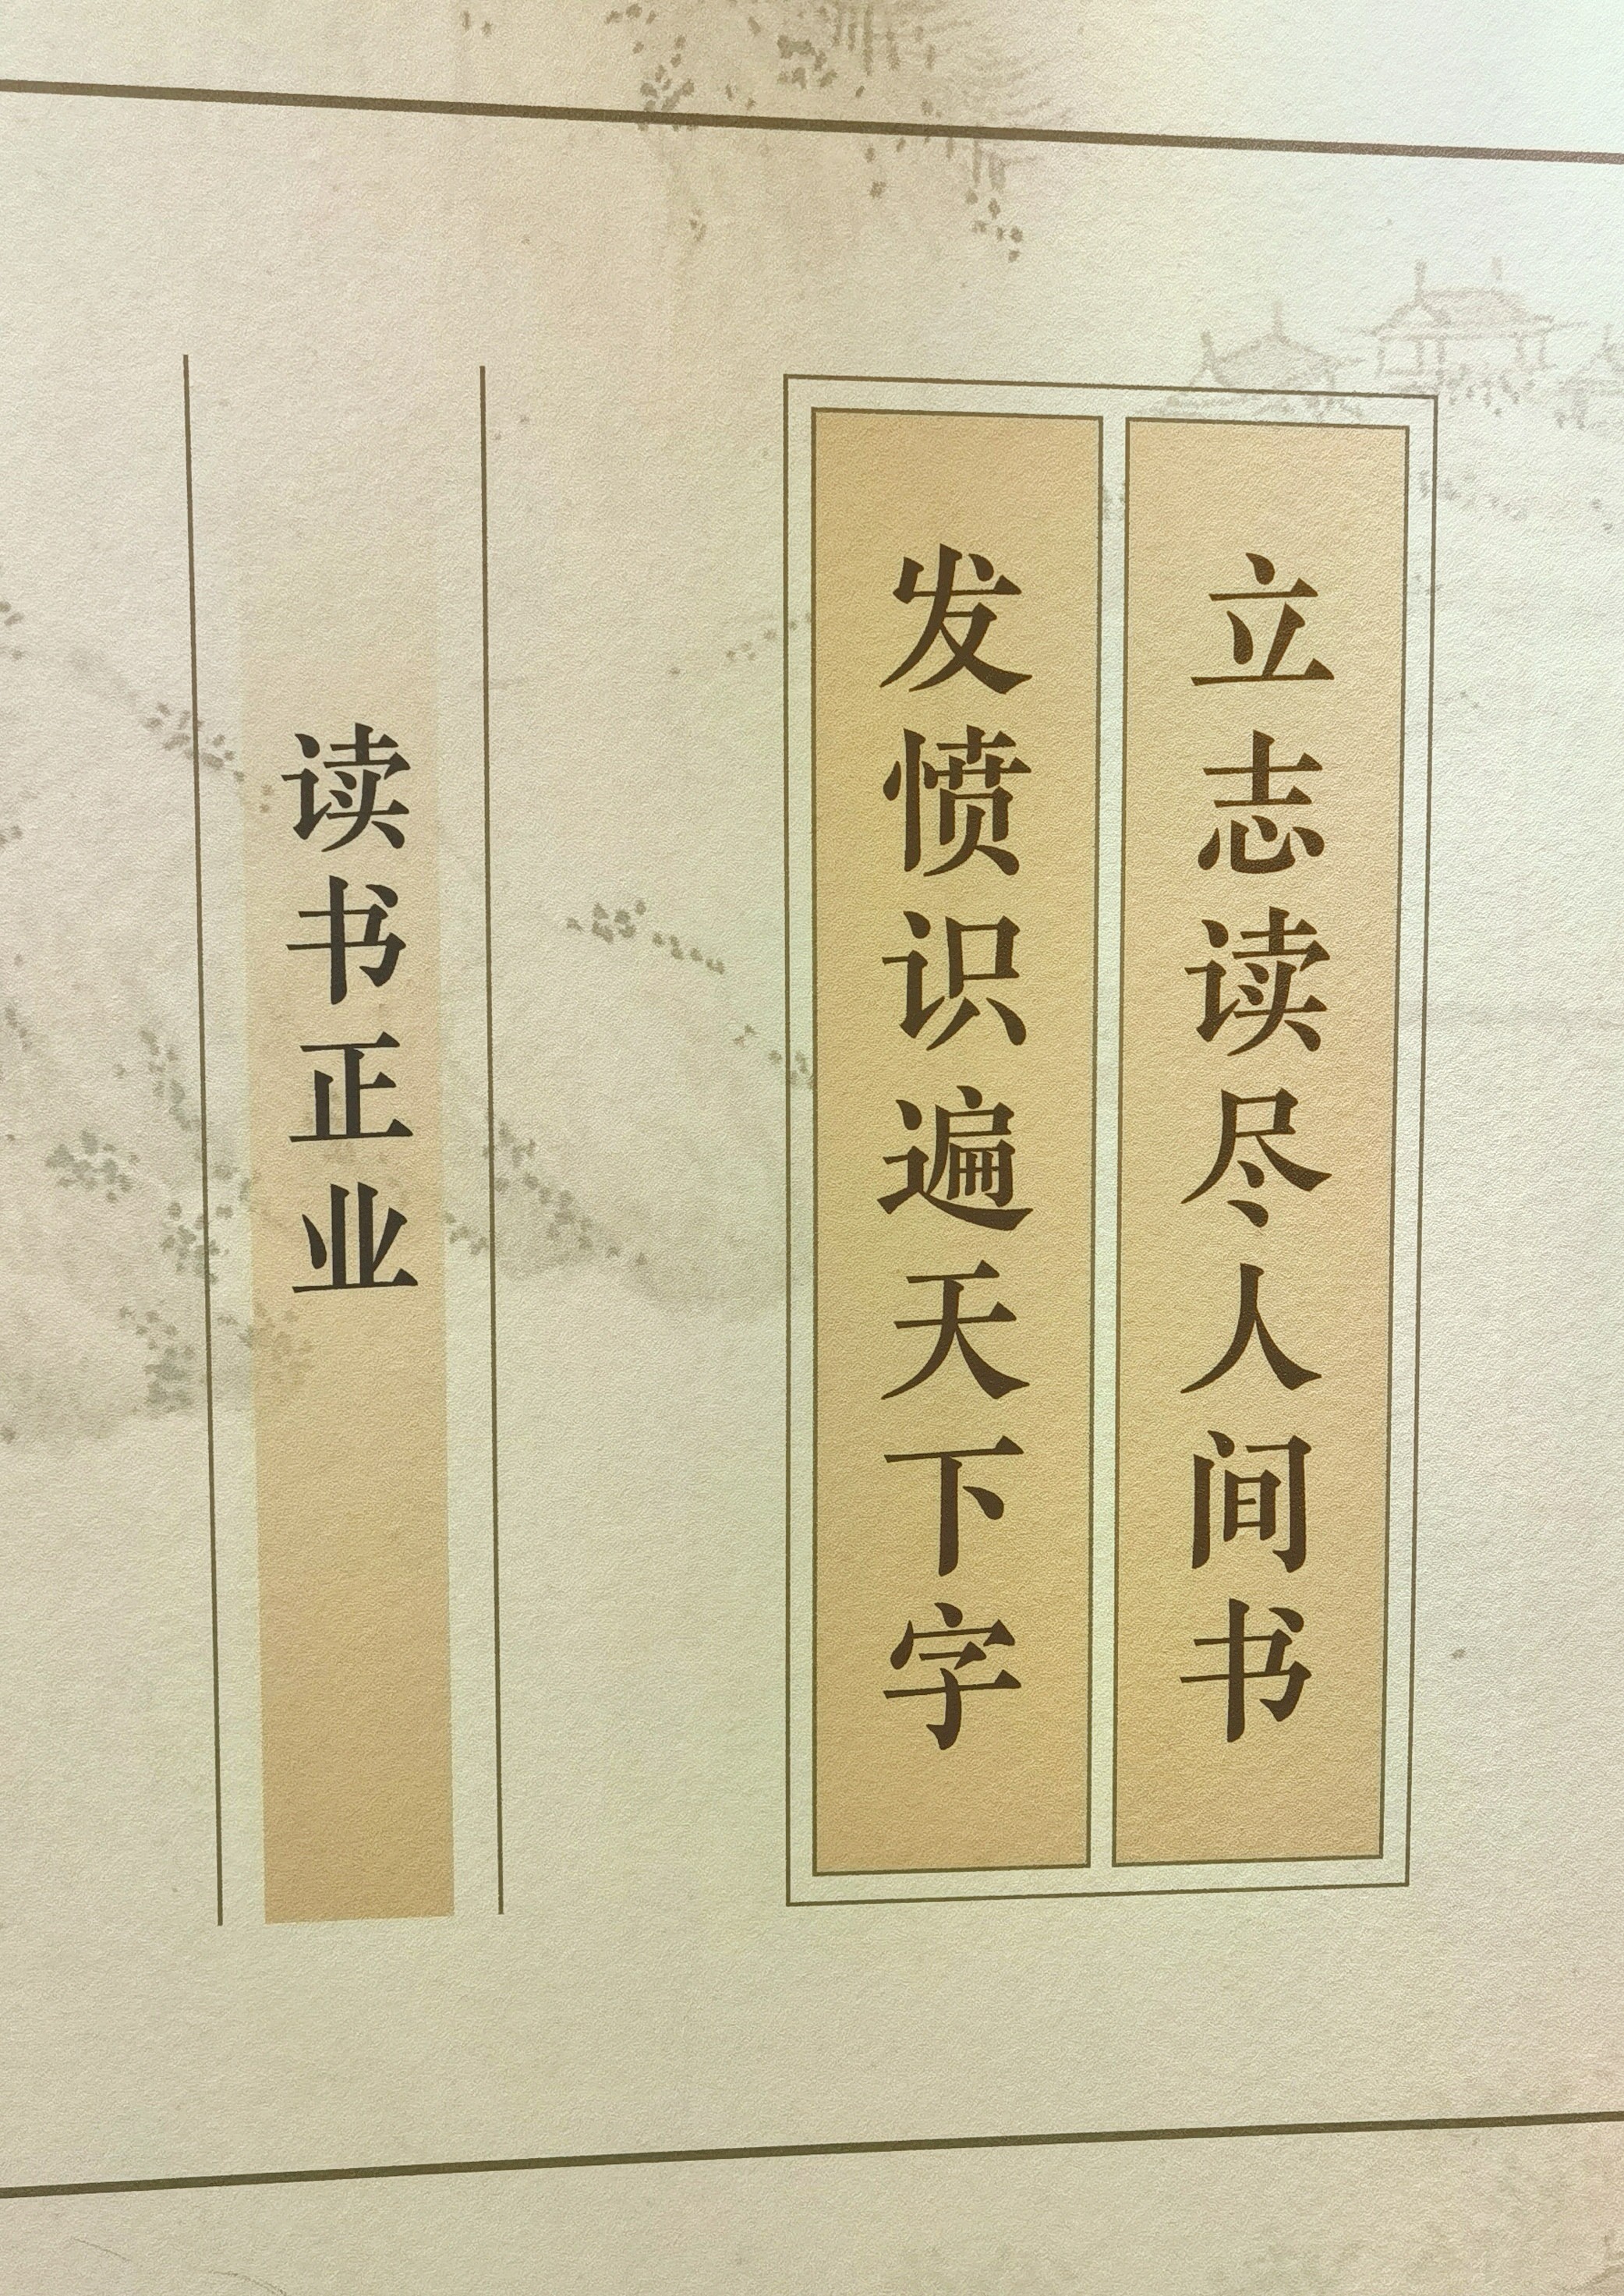 立志读尽人间书
发愤识遍天下字
读书正业